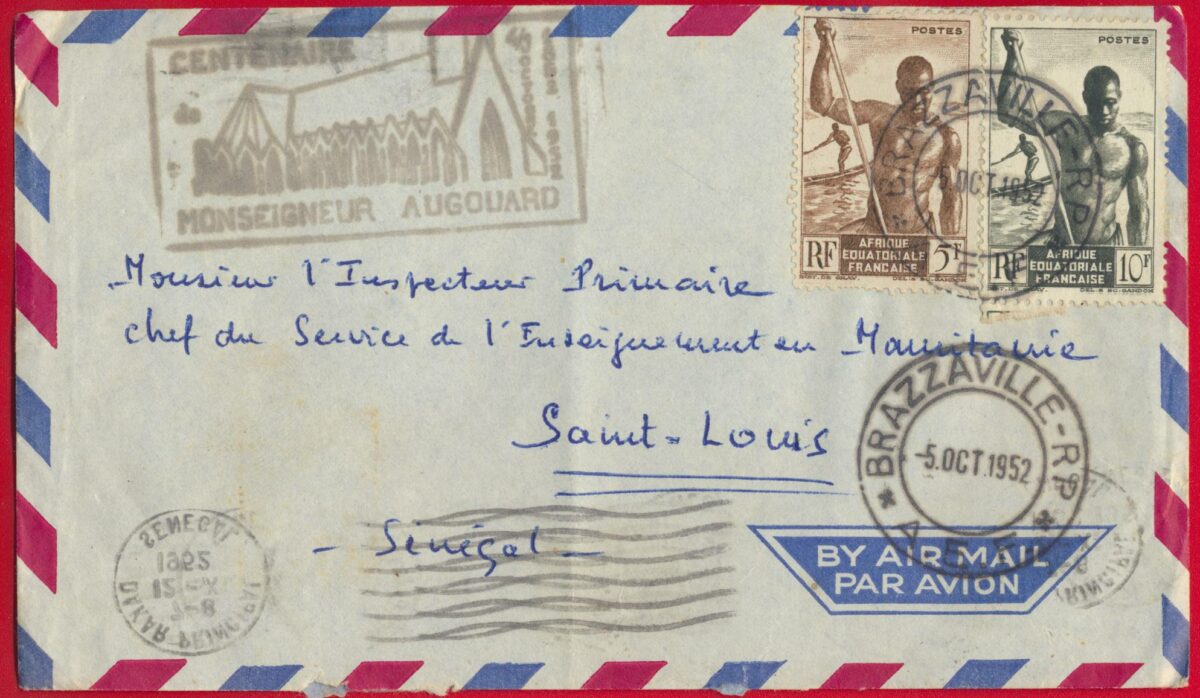 CENTENAIRE
de
MONSEIGNEUR AUGOUARD
POSTES
RF
AFRIQUE
EQUATORIALE
FRANCAISE
5F
POSTES
RF
AFRIQUE
EQUATORIALE
FRANCAISE
10F
DEL. & SC. GANDON
BRAZZAVILLE-RP
5.OCT.1952
Monsieur l'Inspecteur Primaire
Chef du Service de l'Enseignement en Mauritanie
Saint-Louis
- Sénégal -
* BRAZZAVILLE-RP *
-5.OCT.1952
BY AIR MAIL
PAR AVION
SENEGAL
DAKAR PRINCIPAL